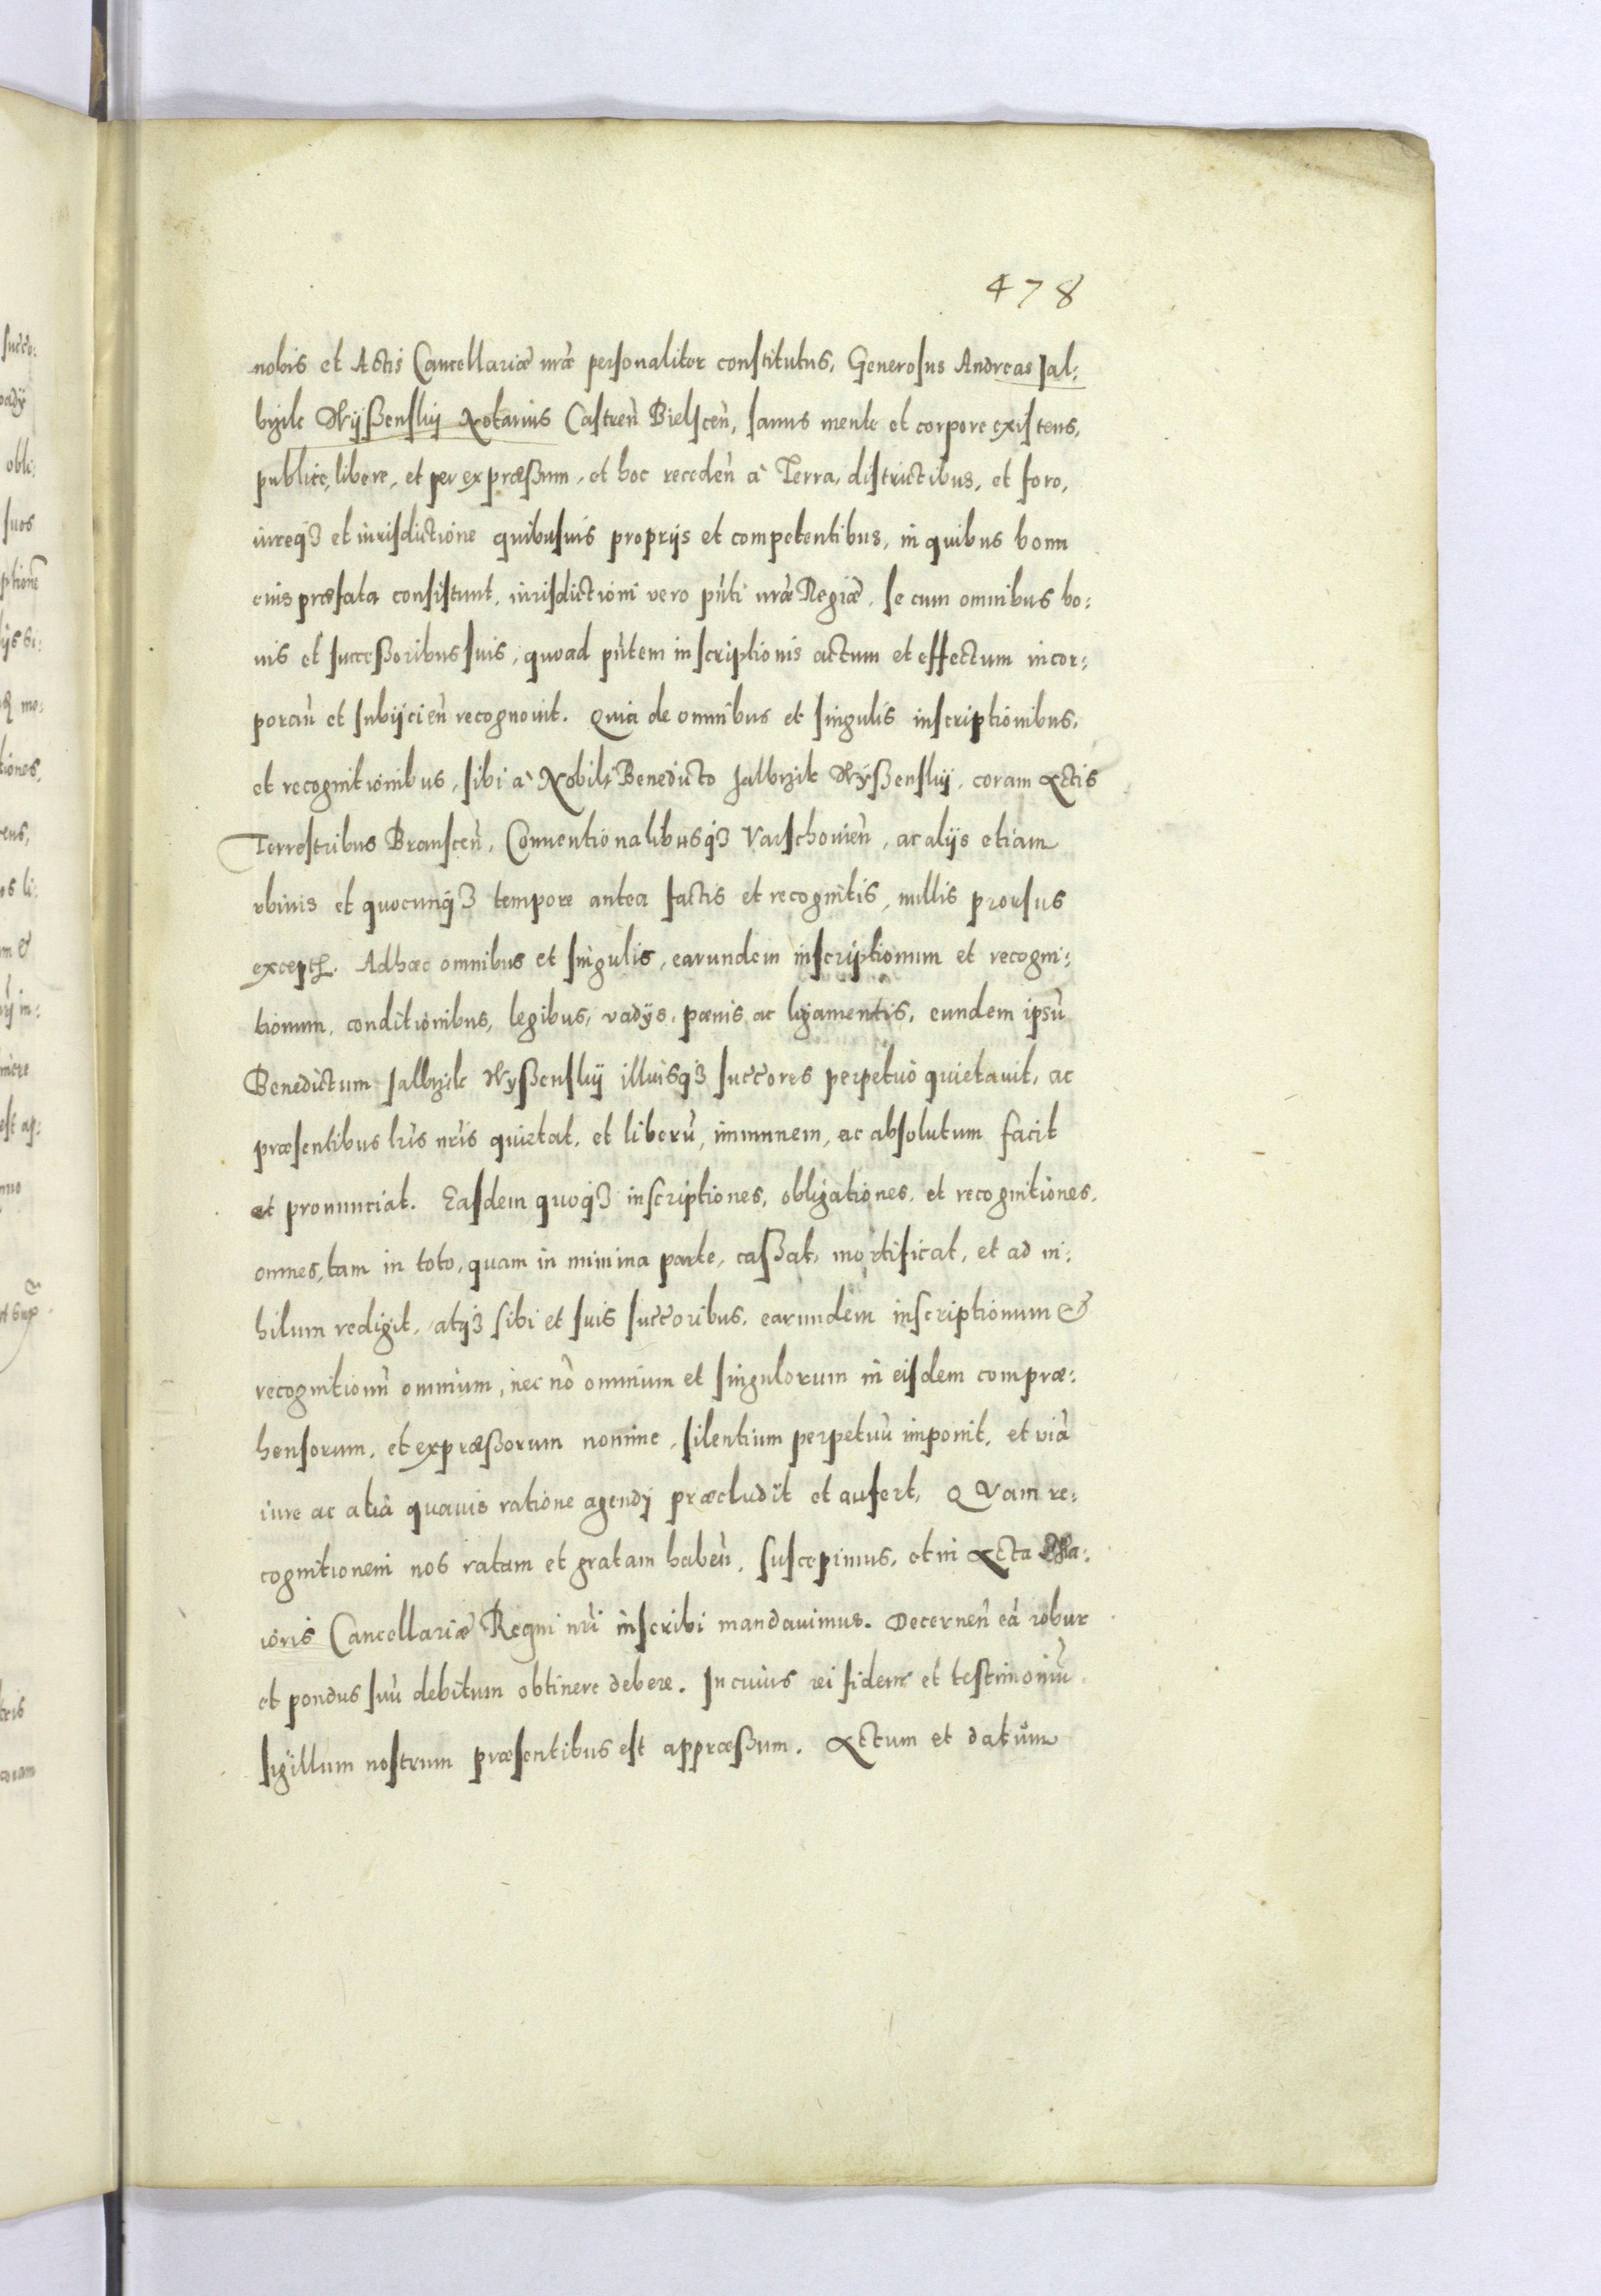 478
nobis et Actis Cancellariæ nr̃æ personaliter constitutus, Generosus Andreas Jal:
bzik Wÿssenskÿ Notarius Castreñ Bielsceñ, sanus mente et corpore existens,
publice, libere, et per expræssum, et hoc recedeñ à Terra, districtibus, et foro,
iureq3 et iurisdictione quibusuis proprijs et competentibus, in quibus bona
eius præfata consistunt, iurisdictioni vero pñti nr̃æ Regiæ, se cum omnibus bo:
nis et successoribus suis, quoad pñtem inscriptionis actum et effectum incor:
porañ et subÿcieñ recognouit. Quia de omnibus et singulis inscriptionibus,
et recognitionibus, sibi à Nobili Benedicto Jalbzik Wÿssenskÿ, coram Actis
Terrestribus Bransceñ, Conuentionalibusq3 Varschouieñ, ac alijs etiam
vbiuis et quocunq3 tempore antea factis et recognitis, nullis prorsus
except. Adhæc omnibus et singulis, earundem inscriptionum et recogni:
tionum, conditionibus, legibus, vadÿs, pœnis ac ligamentis, eundem ipsũ
Benedictum Jalbzik Wyssenskÿ illiusq3 succores perpetuò quietauit, ac
præsentibus lr̃is nr̃is quietat, et liberũ, immunem, ac absolutum facit
et pronunciat. Easdem quoq3 inscriptiones, obligationes, et recognitiones,
omnes, tam in toto, quam in minima parte, cassat, mortificat, et ad ni:
hilum redigit, atq3 sibi et suis succoribus, earundem inscriptionum &
recognitionũ omnium, nec nõ omnium et singulorum in eisdem compræ:
hensorum, et expræssorum nomine, silentium perpetuũ imponit, et viã
iure ac aliã quauis ratione agendj præcludit et aufert, Quam re:
cognitionem nos ratam et gratam habeñ, suscepimus, et in Acta Ma:
ioris Cancellariæ Regni nr̃i inscribi mandauimus. Decerneñ eã robur
et pondus suũ debitum obtinere debere. In cuius rei fidem et testimoniũ
sigillum nostrum præsentibus est appræssum. Actum et datum